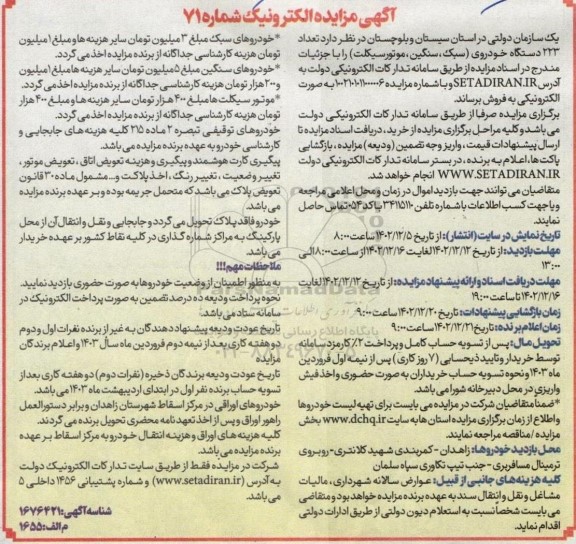 آگهی مزایده الکترونیک شماره ۷۱
یک سازمان دولتی در استان سیستان و بلوچستان در نظر دارد تعداد
۲۲۳ دستگاه خودروی (سبک، سنگین، موتورسیکلت) را با جزئیات
مندرج در اسناد مزایده از طریق سامانه تدارکات الکترونیکی دولت به
آدرس SETADIRAN.IR و با شماره مزایده به صورت
الکترونیکی به فروش برساند.
برگزاری مزایده صرفا از طریق سامانه تدارکات الکترونیکی دولت
می باشد و کلیه مراحل برگزاری مزایده از خرید، دریافت اسناد مزایده تا
ارسال پیشنهادات قیمت، واریز وجه تضمین (ودیعه) مزایده، بازگشایی
پاکت ها، اعلام به برنده، در بستر سامانه تدارکات الکترونیکی دولت
WWW.SETADIRAN.IR انجام خواهد شد.
متقاضیان می توانند جهت بازدید اموال در زمان و محل اعلامی مراجعه
و یا جهت کسب اطلاعات با شماره تلفن ۳۴۱۵۱۱۰ با کد ۰۵۴ تماس حاصل
نمایند.
تاریخ نمایش در سایت (انتشار): از تاریخ ۱۴۰۲/۱۲/۵ ساعت ۸:۰۰
مهلت بازدید: از تاریخ ۱۴۰۲/۱۲/۱۲ لغایت ۱۴۰۲/۱۲/۱۶ از ساعت ۸:۰۰ الی
۱۳:۰۰
مهلت دریافت اسناد و ارائه پیشنهاد مزایده: از تاریخ ۱۴۰۲/۱۲/۱۲ لغایت
۱۴۰۲/۱۲/۱۶ تا ساعت ۱۹:۰۰
زمان بازگشایی پیشنهادات: تاریخ ۱۴۰۲/۱۲/۲۰ ساعت ۹:۰۰
زمان اعلام برنده: تاریخ ۱۴۰۲/۱۲/۲۱ ساعت ۹:۰۰
تحویل مال: پس از تسویه حساب کامل و پرداخت ۲٪ کارمزد سامانه
توسط خریدار و تایید ذیحسابی (۷ روز کاری) پس از نیمه اول فروردین
ماه ۱۴۰۳ و نحوه تسویه حساب خریداران به صورت حضوری و اخذ فیش
واریزی در محل دبیرخانه شورا می باشد.
*ضمنا متقاضیان شرکت در مزایده می بایست برای تهیه لیست خودروها
و اطلاع از زمان برگزاری مزایده استان ها به سایت www.dchq.ir بخش
مزایده / مناقصه مراجعه نمایند.
محل بازدید خودروها: زاهدان - کمربندی شهید کلانتری - روبروی
ترمینال مسافربری - جنب تیپ تکاوری سپاه سلمان
کلیه هزینه های جانبی از قبیل: عوارض سالانه شهرداری، مالیات
مشاغل و نقل و انتقال سند به عهده برنده مزایده خواهد بود و متقاضی
می بایست شخصا نسبت به استعلام دیون دولتی از طریق ادارات دولتی
اقدام نماید.
*خودروهای سبک مبلغ ۳ میلیون تومان سایر هزینه ها و مبلغ ۱ میلیون
تومان هزینه کارشناسی جداگانه از برنده مزایده اخذ می گردد.
*خودروهای سنگین مبلغ ۵ میلیون تومان سایر هزینه ها مبلغ ۱ میلیون
و ۲۰۰ هزار تومان هزینه کارشناسی جداگانه از برنده مزایده اخذ می گردد.
*موتور سیکلت ها مبلغ ۴۰۰ هزار تومان سایر هزینه ها و مبلغ ۴۰۰ هزار
تومان هزینه کارشناسی جداگانه از برنده مزایده اخذ می گردد.
خودروهای توقیفی تبصره ۲ ماده ۲۱۵ کلیه هزینه های جابجایی و
کارشناسی خودرو به عهده برنده مزایده می باشد.
پیگیری کارت هوشمند و پیگیری و هزینه تعویض اتاق، تعویض موتور،
تغییر وضعیت، تغییر رنگ، اخذ پلاک و... مشمول ماده ۳۰ قانون
تعویض پلاک می باشد که متحمل جریمه بوده و بر عهده برنده مزایده
می باشد.
خودرو فاقد پلاک تحویل می گردد و جابجایی و نقل و انتقال آن از محل
پارکینگ به مراکز شماره گذاری در کلیه نقاط کشور بر عهده خریدار
می باشد.
ملاحظات مهم!!!
به منظور اطمینان از وضعیت خودروها به صورت حضوری بازدید نمایید.
نحوه پرداخت ودیعه ده درصد تضمین به صورت پرداخت الکترونیک در
سامانه ستاد می باشد.
تاریخ عودت ودیعه پیشنهاد دهندگان به غیر از برنده نفرات اول و دوم
دو هفته کاری بعد از نیمه دوم فروردین ماه سال ۱۴۰۳ و اعلام برندگان
مزایده
تاریخ عودت ودیعه برندگان ذخیره (نفرات دوم) دو هفته کاری بعد از
تسویه حساب برنده نفر اول در ابتدای اردیبهشت ماه ۱۴۰۳ می باشد.
خودروهای اوراقی در مرکز اسقاط شهرستان زاهدان و برابر دستورالعمل
راهور اوراق و پس از اخذ تعهد نامه محضری تحویل برنده می گردند.
کلیه هزینه های اوراق و هزینه انتقال خودرو به مرکز اسقاط بر عهده
برنده مزایده می باشد.
شرکت در مزایده فقط از طریق سایت تدارکات الکترونیک دولت
به آدرس (www.setadiran.ir) و شماره پشتیبانی ۱۴۵۶ داخلی ۵
می باشد.
شناسه آگهی: ۱۶۷۶۴۲۱
م الف: ۱۶۵۵